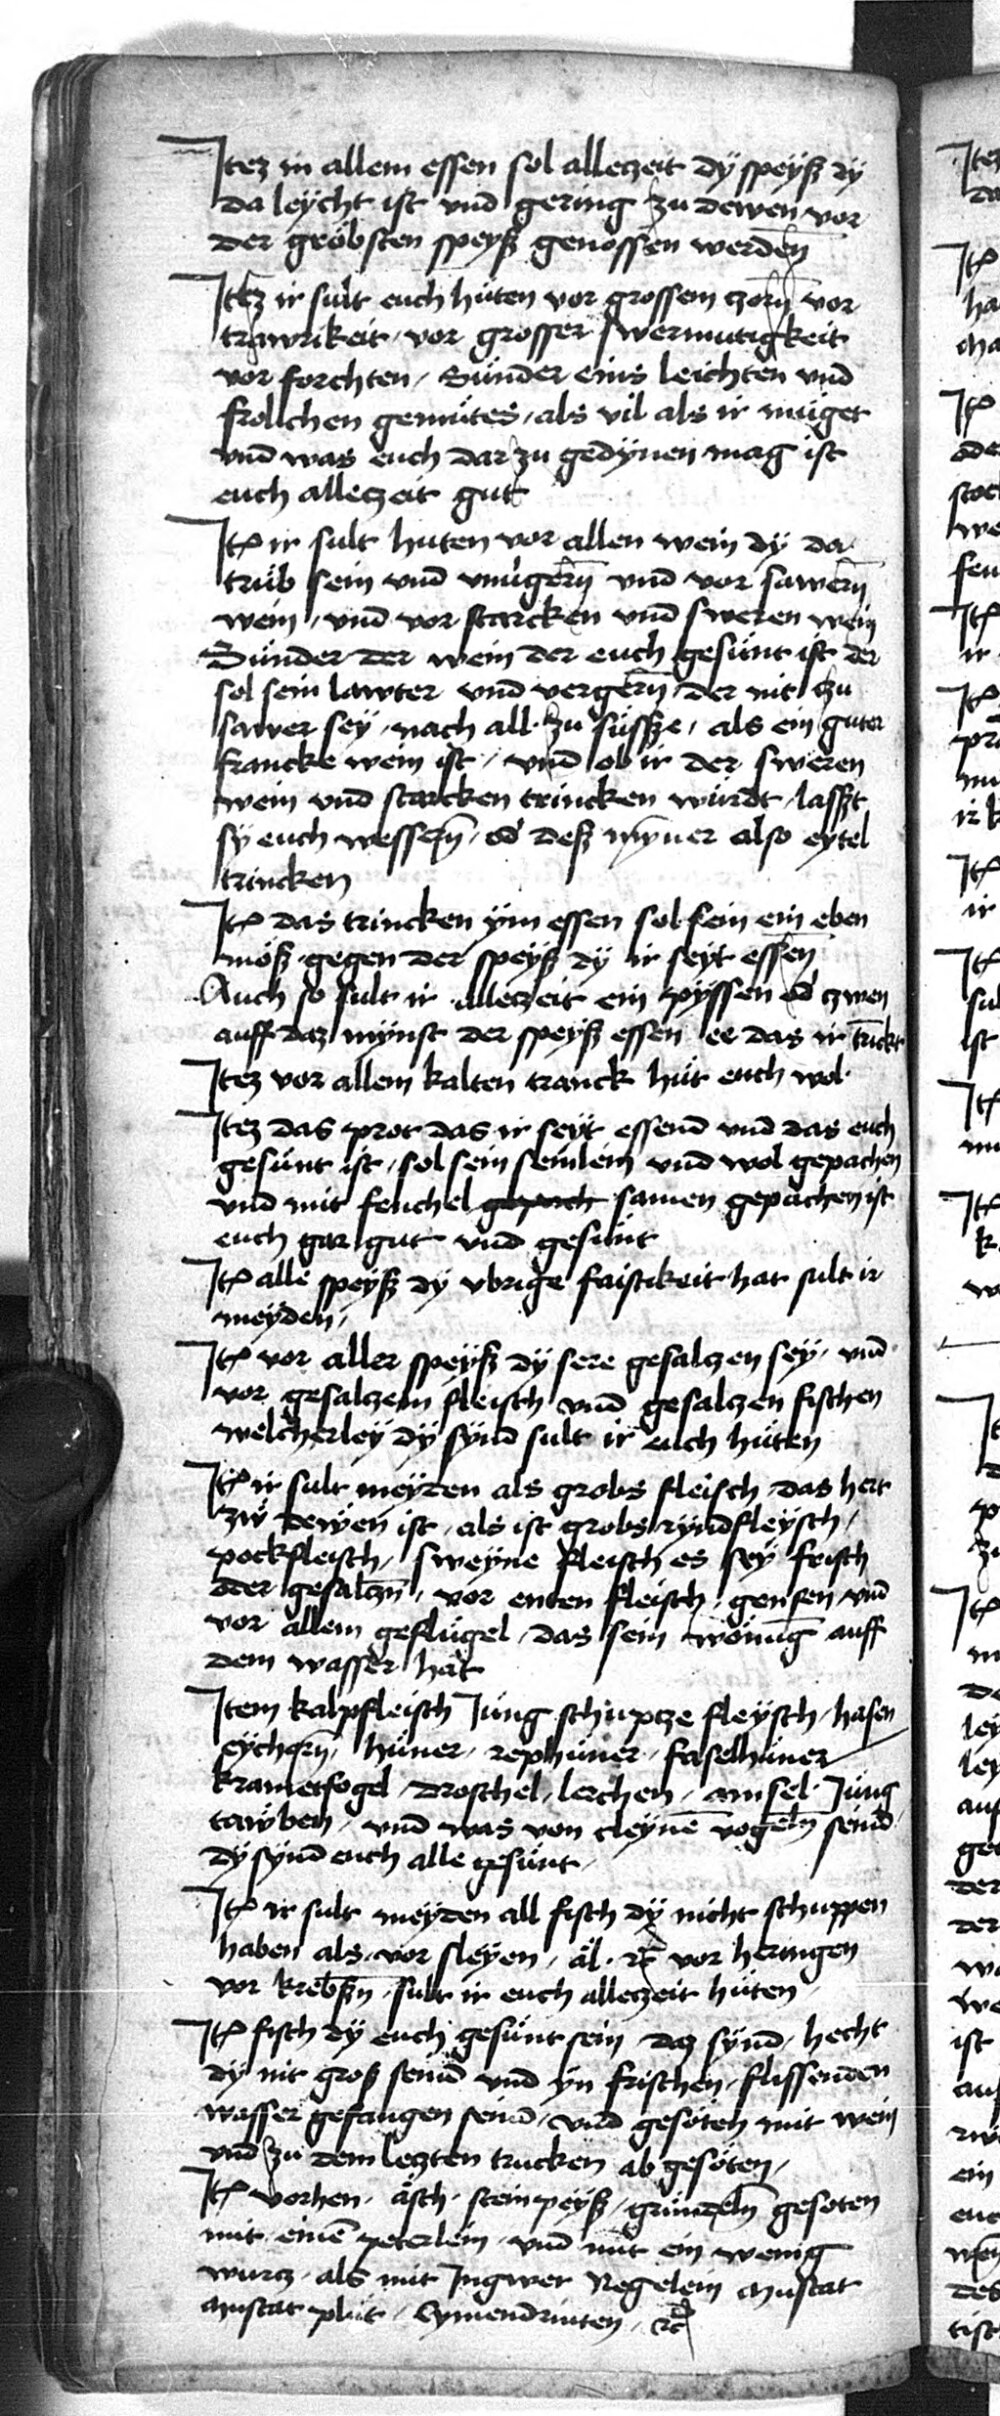 Itez in allem essen sol alleczeit dÿ speÿß dÿ
da leÿcht ist vnd gering zu dewen vor
der gröbsten speÿß genossen werden
Itez ir sult euch hüten vor grossem czorn vor
trawrikeit / vor grosser swermutigkeit
vor forchten / Sünder eins leichten vnd
frolichen gemütes / als vil als ir müget
vnd was euch dar zu gedÿnen mag ist
euch alleczeit gut
Itē ir sult huten vor allen wein dÿ da
trüb sein vnd vnuergern̄ vnd vor sawern̄
wein / vnd vor starcken vnd sweren wein
Sünder der wein der euch gesünt ist der
sol sein lawter vnd vergern̄ / der nit zu
sawer seÿ / nach all zu süsße / als ein guter
francke wein ist / vnd ob ir der sweren
wein vnd starcken trincken würdt / lasßt
sÿ euch wessern̄ / od deß mÿner also eÿtel
trincken
Itē das trincken ÿm essen sol sein ein eben
möß gegen der speÿß dÿ ir seÿt essen
Auch so sult ir alleczeit ein pÿssen od czwen
auff daz mÿnst der speÿß essen ee das ir trīckt
Itez vor allem kalten tranck hüt euch wol
Itez das prot das ir seÿt essend vnd das euch
gesünt ist / sol sein semlein vnd wol gepachen
vnd mit fenchel gepach samen gepachen ist
euch gar gut vnd gesünt
Itē alle speÿß dÿ vbrige faistikeit hat sult ir
meÿden /
Itē vor aller speÿß dÿ sere gesalczen seÿ / vnd
vor gesalczem fleisch vnd gesalczen fischen
welcherleÿ dÿ sÿnd sult ir euch hüten
Itē ir sult meÿden als grobs fleisch das hert
zw dewen ist / als ist grobs rÿndfleÿsch /
pockfleisch / sweÿne fleisch es seÿ frisch
oder gesalczn̄ / vor enten fleisch / gensen vnd
vor allem geflügel / das sein wonūg auff
dem wasser hat
Item kalpfleisch Jung schüptze fleÿsch / hasen
eÿchorn̄ / hüner / rephüner / faselhüner
kramet fogel / droschel / lerchen / amsel / Jung
tawben / vnd was von cleÿnē vogeln̄ seind
dÿ sÿnd euch alle gesünt /
Itē ir sult meÿden all fisch dÿ nicht schuppen
haben als vor sleÿen / äl · rc̄ vor heringen
vor krebßn̄ / sult ir euch alleczeit hüten /
Itē fisch dÿ euch gesünt sein daz sÿnd / hecht
dÿ nit groß seind vnd ÿn frischen / flissenden
wasser gefangen seind / vnd gesoten mit wein
vnd zu dem leczten trucken ab gesöten /
Itē vorhen / äsch / steinpeÿß / grundeln̄ gesoten
mit einē peterlein / vnd mit ein wenig
wurcz / als mit Ingwer Negelein Muscat
Muscat plüt / Cÿmendrinten / rc̄